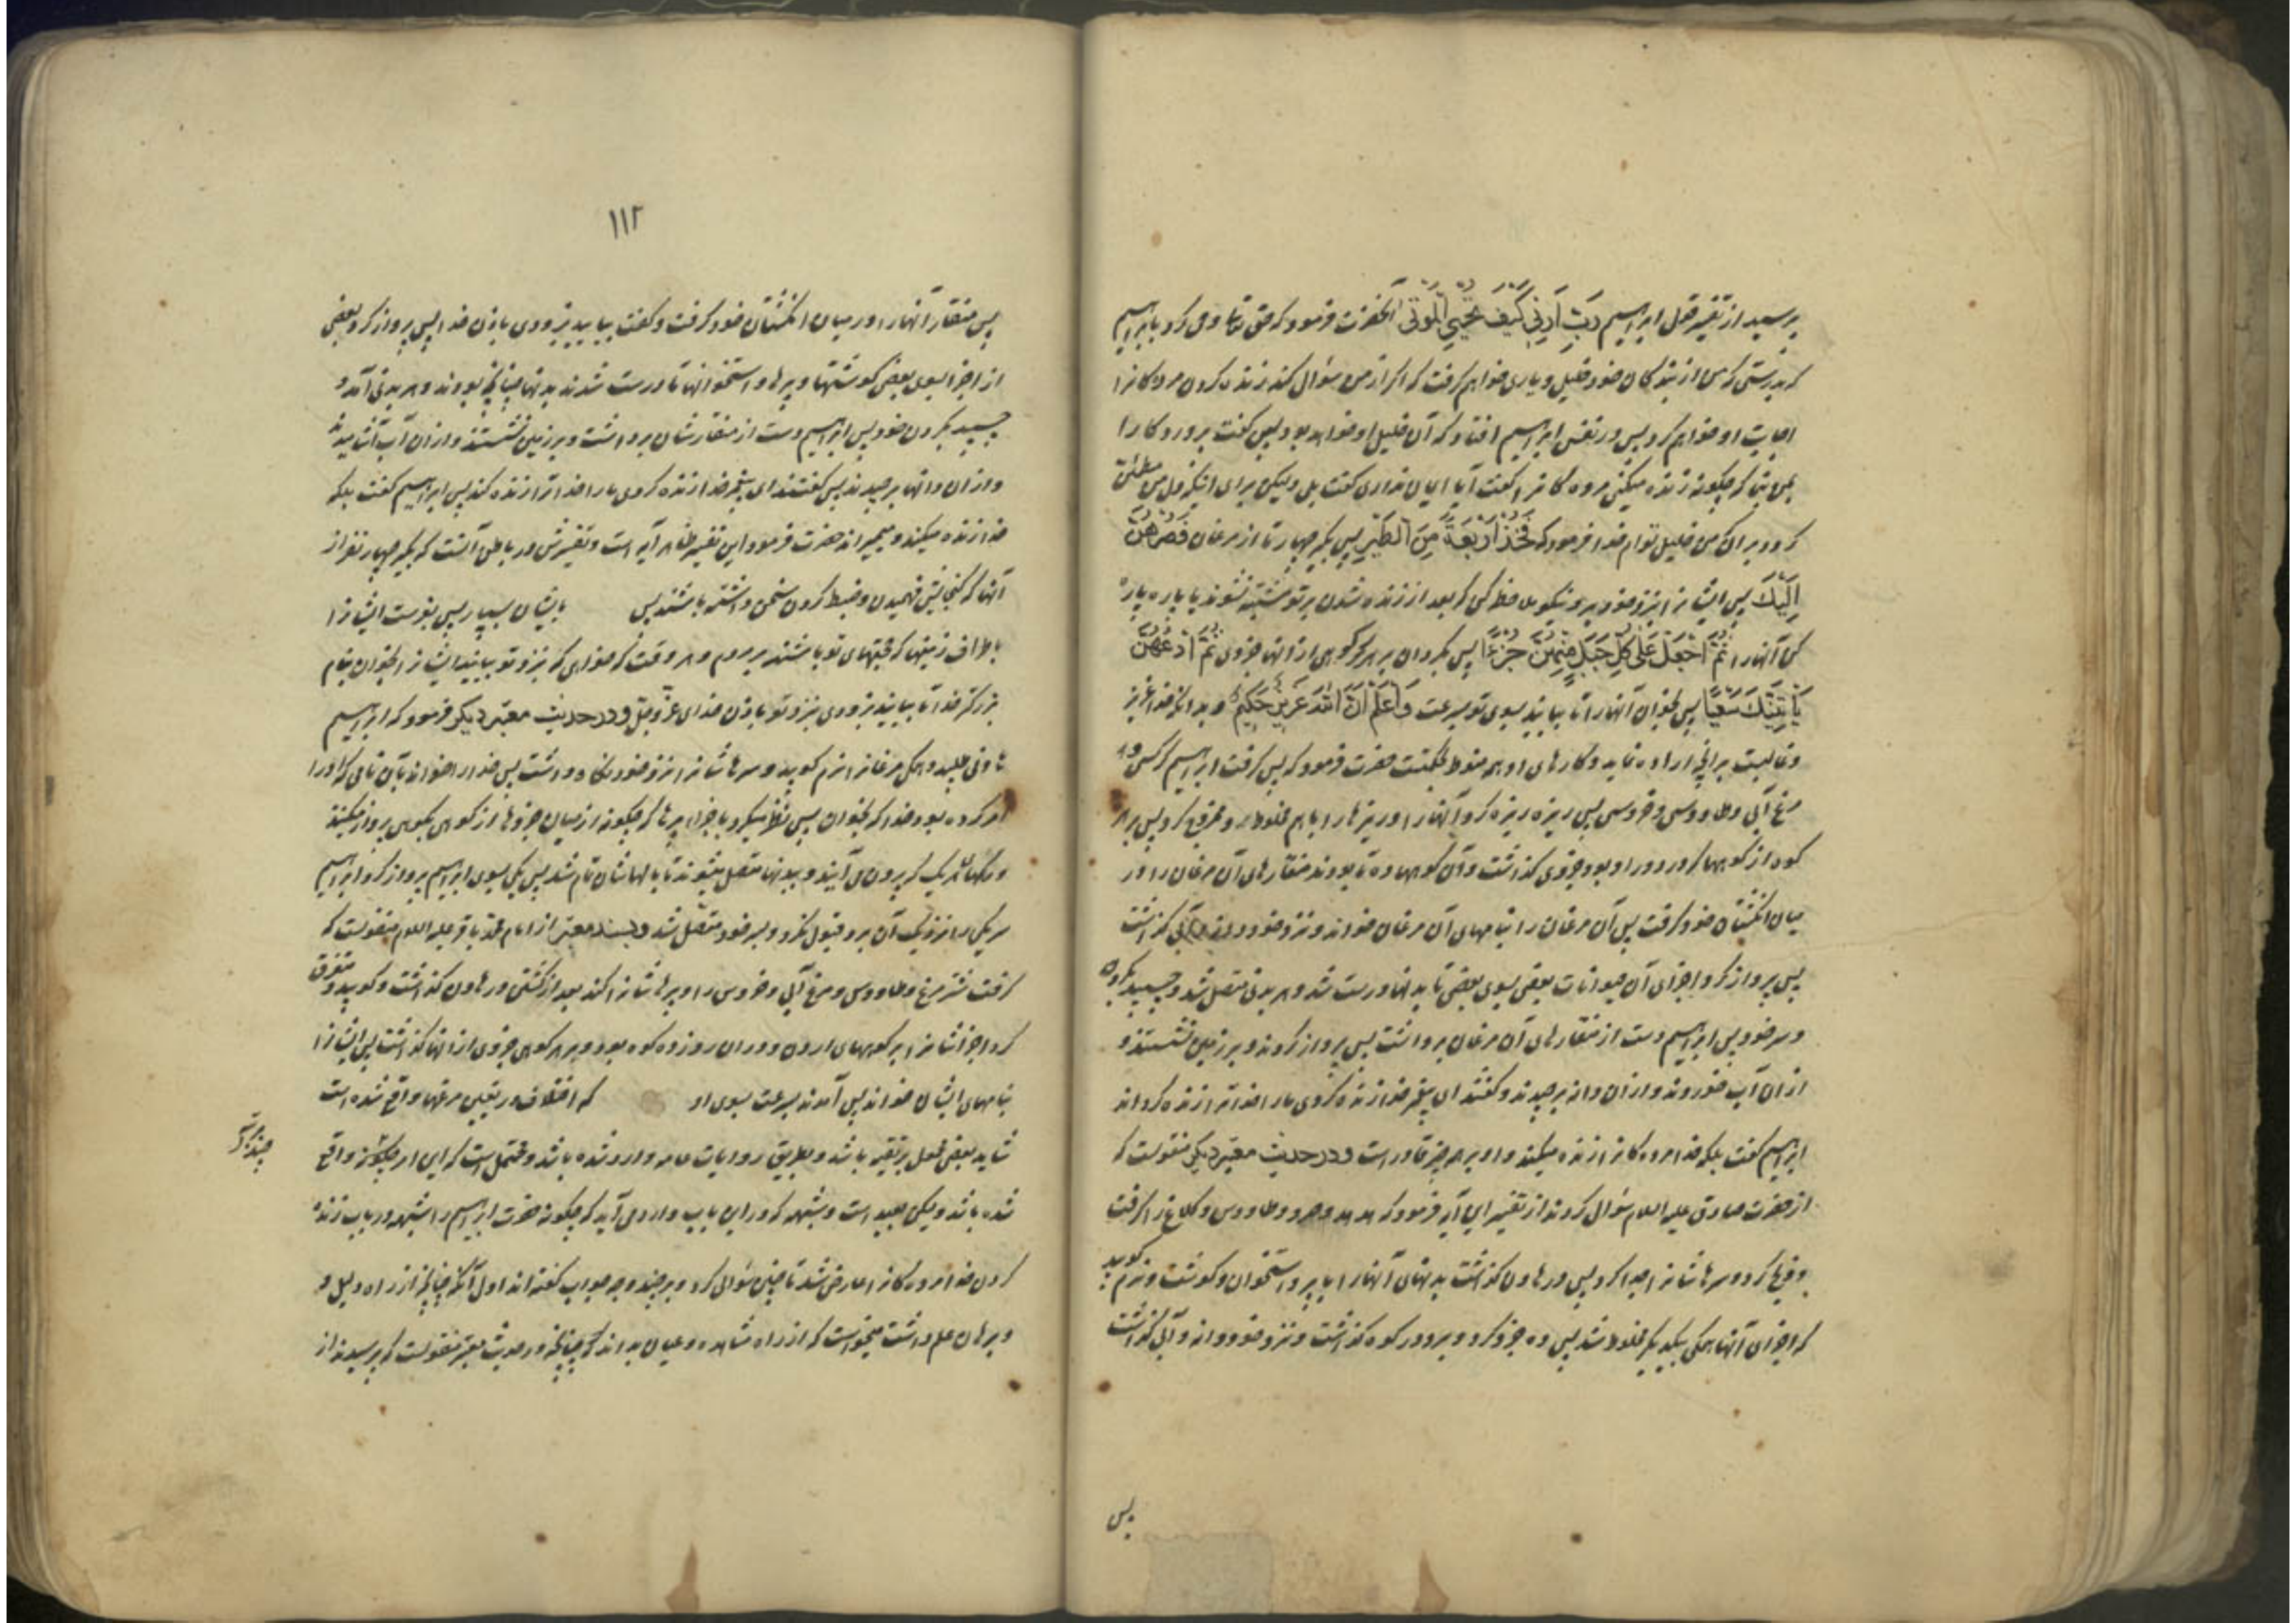 پرسید از تفسیر قول ابراهیم رَبِّ اَرِنِی کَیفَ تُحیِی المَوتی آنحضرت فرمود که حق تعالی وحی کرد بابراهیم
که بدرستی که من از بندگان خود خلیلی و یاری خواهم گرفت که اگر از من سؤال کند زنده کردن مردگانرا
اجابت او خواهم کرد پس در نفس ابراهیم افتاد که آن خلیل او خواهد بود پس گفت پروردگارا
بمن بنما که چگونه زنده میکنی مرده گانرا گفت آیا ایمان نداری گفت بلی ولیکن برای آنکه دل من مطمئن
گردد بر آن که من خلیل توام خدا فرمود که فَخُذ اَربَعَةً مِنَ الطَّیرِ پس بگیر چهار تا از مرغان فَصُرهُنَّ
اِلَیكَ پس ایشانرا بنزد خود ببر و نیکو ملاحظه کن که بعد از زنده شدن بر تو مشتبه نشوند یا پاره پاره
کن آنهارا ثُمَّ اجعَل عَلی کُلِّ جَبَلٍ مِنهُنَّ جُزءًا پس بگردان بر هر کوهی از آنها جزوی ثُمَّ ادعُهُنَّ
یَأتِینَكَ سَعیًا پس بخوان آنهارا تا بیایند بسوی تو بسرعت وَاعلَم اَنَّ اللهَ عَزیزٌ حَکیمٌ و بدانکه خدا عزیز
و غالبست بر آنچه اراده نماید و کارهای او همه منوط بحکمتست حضرت فرمود که پس گرفت ابراهیم کرکس و
مرغ آبی و طاووس و خروس پس ریزه ریزه کرد آنهارا و ریزهارا باهم مخلوط و ممزوج کرد پس بر هر
کوه از کوهها که در دور او بود جزوی گذاشت و آن کوهها ده تا بودند منقارهای آن مرغان را در
میان انگشتان خود گرفت پس آن مرغان را بنامهای آن مرغان خواند و نزد خود دانه و آبی گذاشت
پس پرواز کرد اجزای آن حیوانات بعضی بسوی بعضی تا بدنها درست شد و هر بدنی متصل شد و چسبید بگردن
و سر خود پس ابراهیم دست از منقارهای آن مرغان برداشت پس پرواز کردند و بر زمین نشستند و
از آن آب خوردند و از آن دانه برچیدند و گفتند ای پیغمبر خدا زنده کردی مارا خدا ترا زنده گرداند
ابراهیم گفت بلکه خدا مرده گانرا زنده میکند و او بر همه چیز قادر است و در حدیث معتبر دیگر منقولست که
از حضرت صادق علیه السلام سؤال کردند از تفسیر این آیه فرمود که هدهد و صرد و طاووس و کلاغ را گرفت
و ذبح کرد و سرهاشانرا جدا کرد پس در هاون گذاشت بدنهای آنهارا با پر و استخوان و گوشت و نرم کوبید
که اجزای آنها همگی بیکدیگر مخلوط شد پس ده جزو کرد و بر ده کوه گذاشت و نزد خود دانه و آبی گذاشت
پس
۱۱۲
پس منقار آنهارا در میان انگشتان خود گرفت و گفت بیایید بزودی باذن خدا پس پرواز کرد بعضی
از اجزا بسوی بعضی گوشتها و پرها و استخوانها تا درست شدند بدنها چنانچه بودند و هر بدنی آمد و
چسبید بگردن خود پس ابراهیم دست از منقارشان برداشت و بر زمین نشستند و از آن آب آشامیدند
و از آن دانها برچیدند پس گفتند ای پیغمبر خدا زنده کردی مارا خدا ترا زنده کند پس ابراهیم گفت بلکه
خدا زنده میکند و میمیراند حضرت فرمود این تفسیر ظاهر آیه است و تفسیرش در باطن آنست که بگیر چهار نفر از
آنها که گنجایش فهمیدن و ضبط کردن سخن داشته باشند پس بایشان بسپار پس بفرست ایشانرا
باطراف زمینها که حجتهای تو باشند بر مردم و هر وقت که خواهی که بنزد تو بیایند ایشانرا بخوان بنام
بزرگتر خدا تا بیایند بزودی بنزد تو باذن خدای عز و جل و در حدیث معتبر دیگر فرمود که ابراهیم
هاونی طلبید و همگی مرغانرا نرم کوبید و سرهاشانرا نزد خود نگاه داشت پس خدارا خواند بآن نامی که اورا
امر کرده بود خدا که بخوان پس نظر میکرد باجزاء پرها که چگونه از میان جزوها از کوهی بکوهی پرواز میکنند
و رگها که یک یک بیرون می آیند و ببدنها متصل میشوند تا بالهاشان تمام شد پس یکی بسوی ابراهیم پرواز کرد ابراهیم
سر یکی را نزدیک آن برد قبول نکرد و بسر خود متصل شد و بسند معتبر از امام محمد باقر علیه السلام منقولست که
گرفت شتر مرغ و طاووس و مرغ آبی و خروس را و پرهاشانرا کند بعد از کشتن و در هاون گذاشت و کوبید و متفرق
کرد اجزاشانرا بر کوههای اردن و در آن روز ده کوه بود و بر هر کوهی جزوی از آنها گذاشت پس ایشانرا
بنامهای ایشان خواند پس آمدند بسرعت بسوی او که اختلاف در تعیین مرغها واقع شده است
شاید بعضی محمول بر تقیه باشد و بطریق روایات عامه وارد شده باشد و محتمل است که این امر واقع
شده باشد ولیکن بعید است و شبهه که در این باب وارد می آید که چگونه حضرت ابراهیم را شبهه در باب زنده
کردن خدا مرده گانرا عارض شد تا چنین سؤالی کرد و بر چند وجه جواب گفته اند اول آنکه چنانچه از راه دلیل و
و برهان علم داشت میخواست که از راه مشاهده و عیان بداند که چنانچه در حدیث معتبر منقولست که پرسیدند از